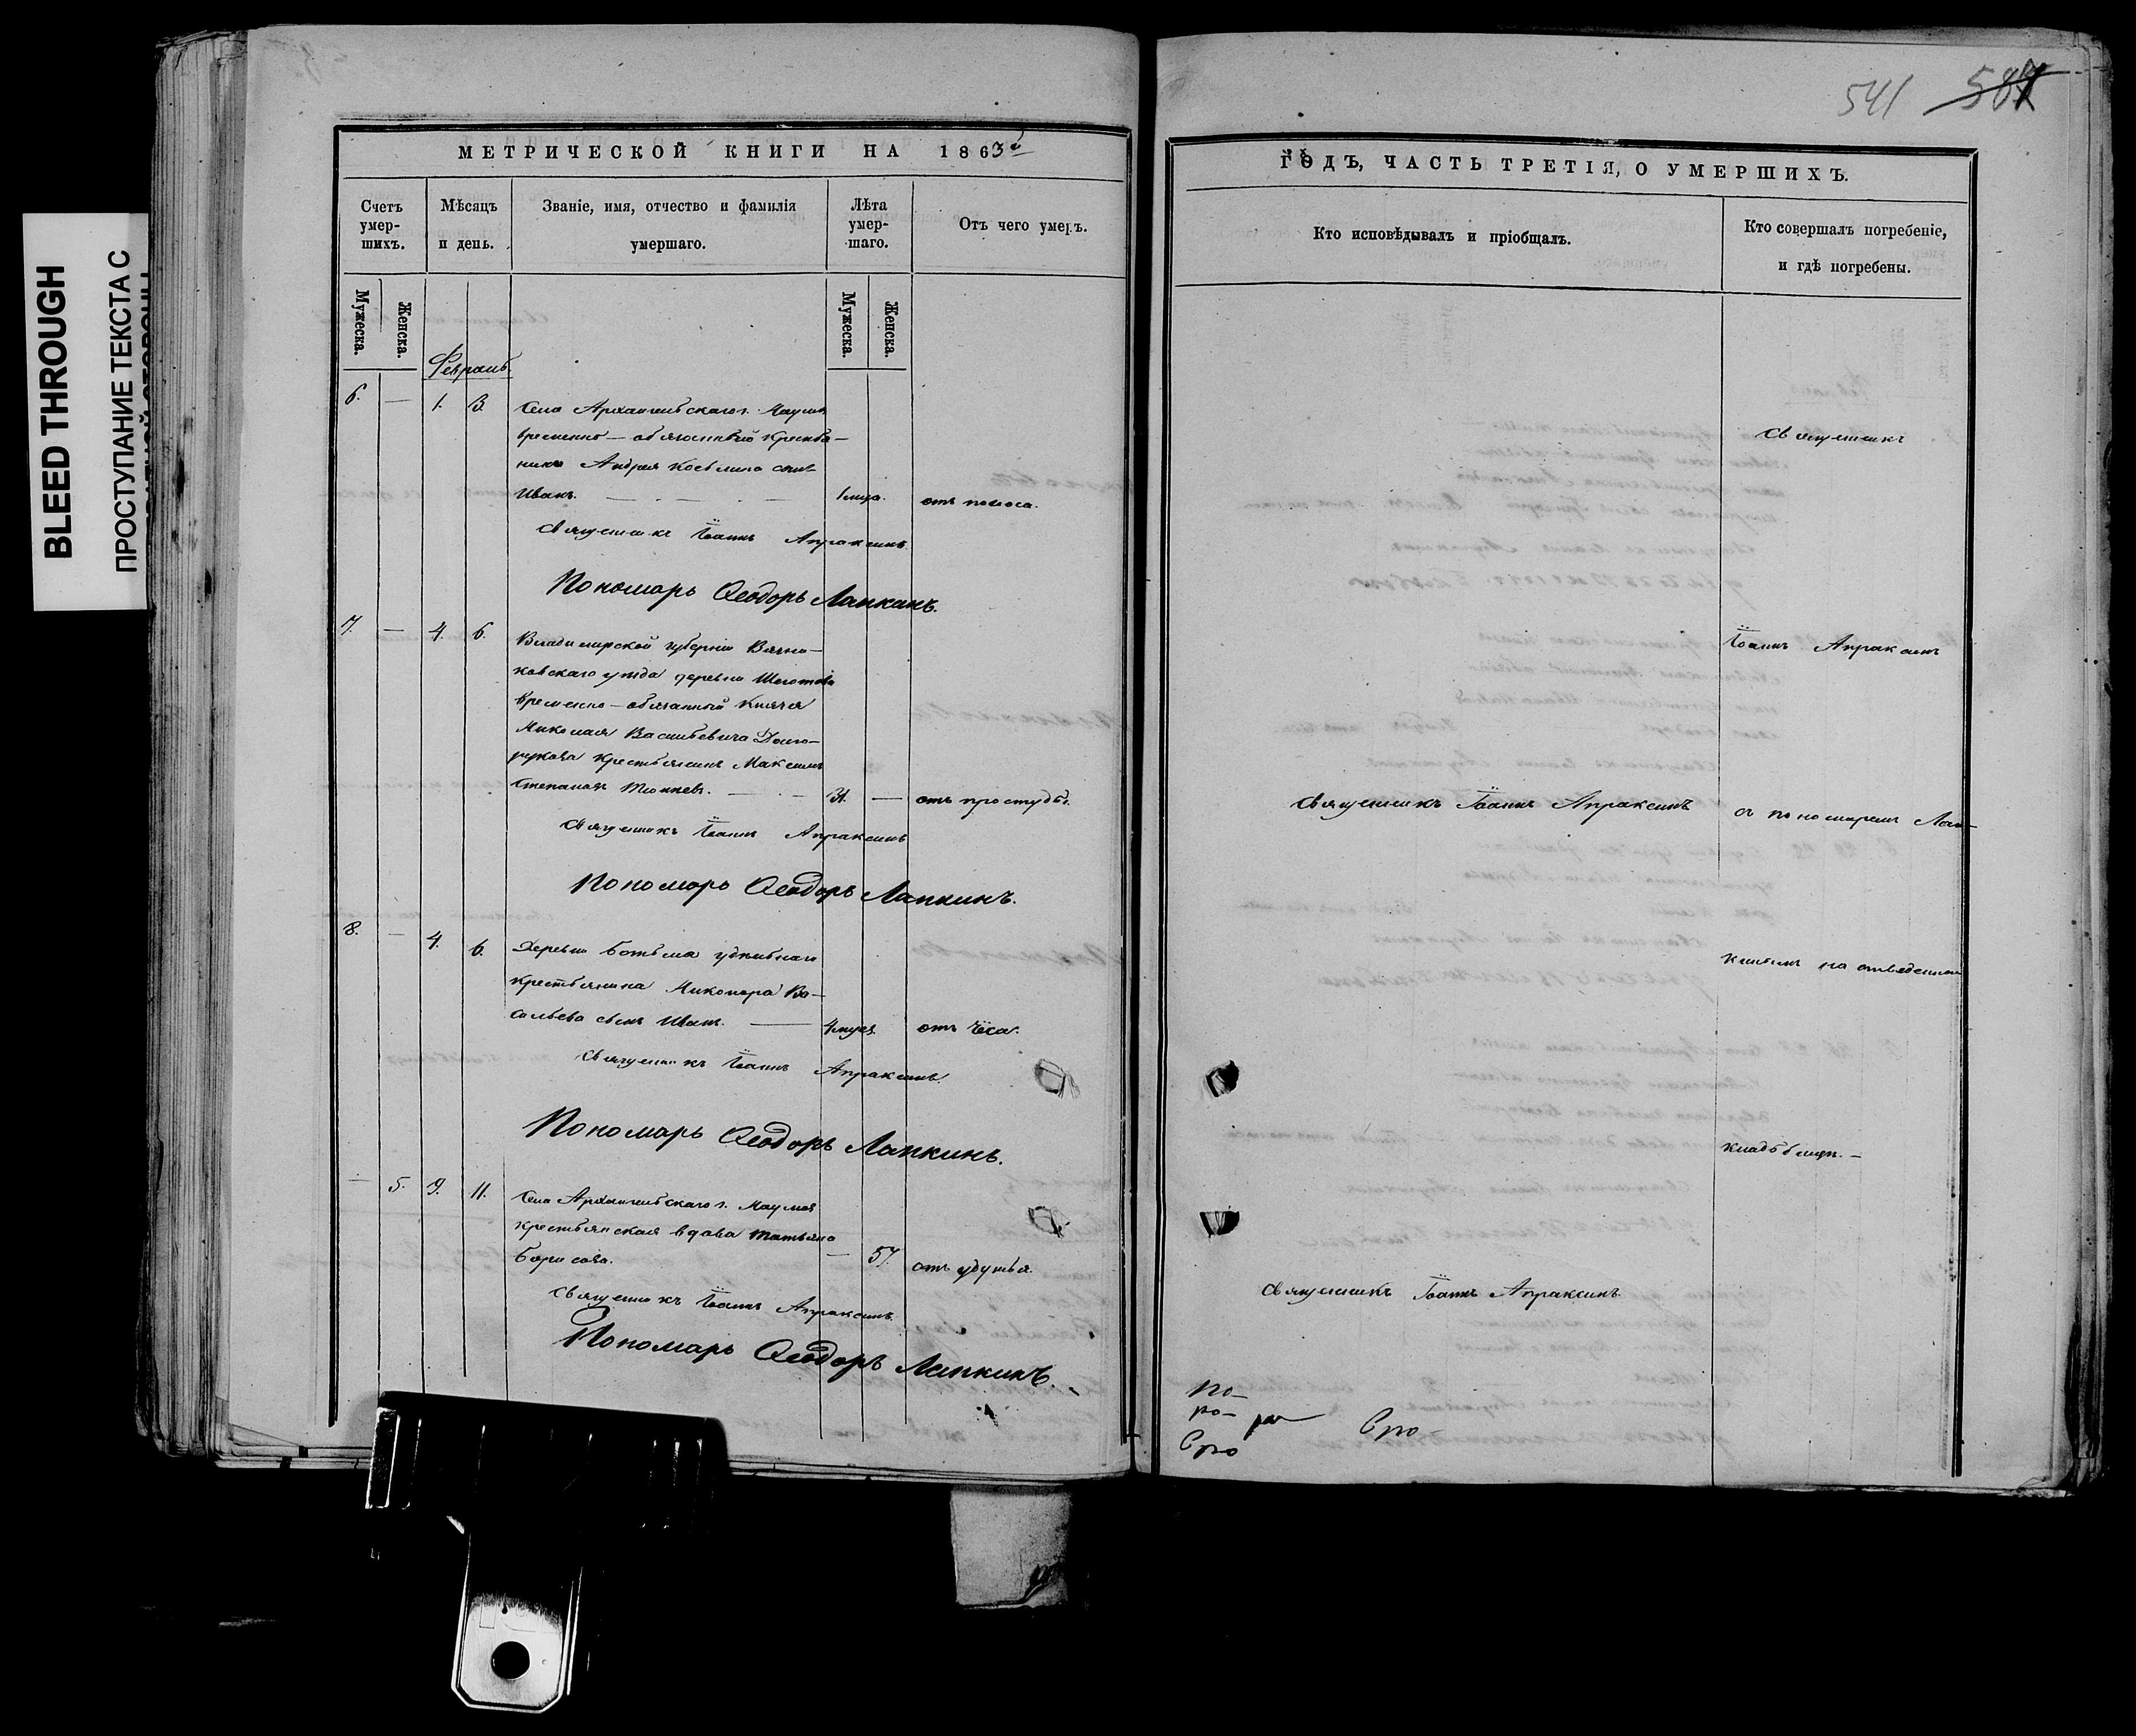 541 587
BLEED THROUGH
ПРОСТУПАНИЕ ТЕКСТА С
МЕТРИЧЕСКОЙ КНИГИ НА 1863й
Счетъ умер-шихъ.
Мѣсяцъ и день.
Званіе, имя, отчество и фамилія умершаго.
Лѣта умер-шаго.
Отъ чего умеръ.
Мужеска.
Женска.
Мужеска.
Женска.
Февраль
6. — 1. 3. Села Архангельскаго
временно-обязанной крестья-
нина Андрея сынъ
Иванъ. — 1 мца. отъ поноса.
Священникъ Іоаннъ Апраксинъ.
Пономарь Ѳеодоръ Лапкинъ.
7. — 4. 6. Владимірской губерніи Вязни-
ковскаго уѣзда деревни
временно-обязанный Князя
Николая Васильевича Долго-
рукова крестьянинъ Максимъ
Степановъ — 31. — отъ простуды.
Священникъ Іоаннъ Апраксинъ
Пономарь Ѳеодоръ Лапкинъ.
8. — 4. 6. Деревни Ботьма удѣльнаго
крестьянина Никонора Ва-
сильева сынъ Иванъ. — 4 отъ
Священникъ Іоаннъ Апраксинъ.
Пономарь Ѳеодоръ Лапкинъ.
— 5. 9. 11. Села Архангельскаго
крестьянская вдова Татьяна
Борисова. — 57. отъ удушья.
Священникъ Іоаннъ Апраксинъ.
Пономарь Ѳеодоръ Лапкинъ.
ГОДЪ, ЧАСТЬ ТРЕТІЯ, О УМЕРШИХЪ.
Кто исповѣдывалъ и пріобщалъ.
Кто совершалъ погребеніе,
и гдѣ погребены.
Священникъ
Іоаннъ Апраксинъ
Священникъ Іоаннъ Апраксинъ
съ пономаремъ Лап-
кинымъ на отведенномъ
кладбищѣ. —
Священникъ Іоаннъ Апраксинъ.